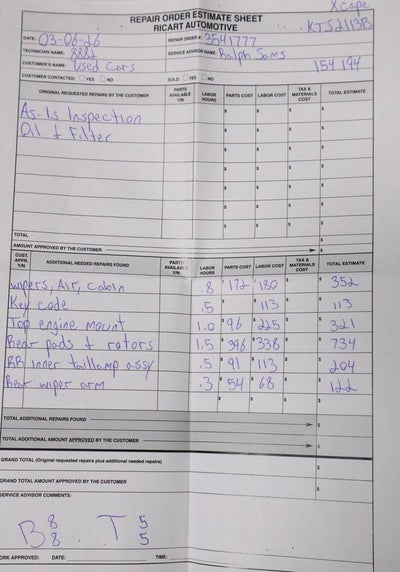 Xcape
REPAIR ORDER ESTIMATE SHEET
RICART AUTOMOTIVE
KTS2113B
DATE: 03-06-26 REPAIR ORDER #: 3541777
TECHNICIAN NAME: 8882 SERVICE ADVISOR NAME: Ralph Sams
CUSTOMER'S NAME: Used Cars 154194
CUSTOMER CONTACTED: YES NO SOLD: YES NO
ORIGINAL REQUESTED REPAIRS BY THE CUSTOMER PARTS AVAILABLE Y/N LABOR HOURS PARTS COST LABOR COST TAX & MATERIALS COST TOTAL ESTIMATE
As-Is Inspection $ $ $ $
Oil & Filter $ $ $ $
$ $ $ $
$ $ $ $
$ $ $ $
$ $ $ $
$ $ $ $
TOTAL $ $ $ $
AMOUNT APPROVED BY THE CUSTOMER $
CUST. APPR. Y/N ADDITIONAL NEEDED REPAIRS FOUND PARTS AVAILABLE Y/N LABOR HOURS PARTS COST LABOR COST TAX & MATERIALS COST TOTAL ESTIMATE
wipers, Air, Cabin .8 $ 172 $ 180 $ $ 352
Key code .5 $ $ 113 $ $ 113
Top engine mount 1.0 $ 96 $ 225 $ $ 321
Rear pads & rotors 1.5 $ 396 $ 338 $ $ 734
RR inner taillamp assy .5 $ 91 $ 113 $ $ 204
Rear wiper arm .3 $ 54 $ 68 $ $ 122
TOTAL ADDITIONAL REPAIRS FOUND $
TOTAL ADDITIONAL AMOUNT APPROVED BY THE CUSTOMER $
GRAND TOTAL (Original requested repairs plus additional needed repairs) $
GRAND TOTAL AMOUNT APPROVED BY THE CUSTOMER $
SERVICE ADVISOR COMMENTS:
B 8 8 . T 5 5
WORK APPROVED: DATE: TIME: